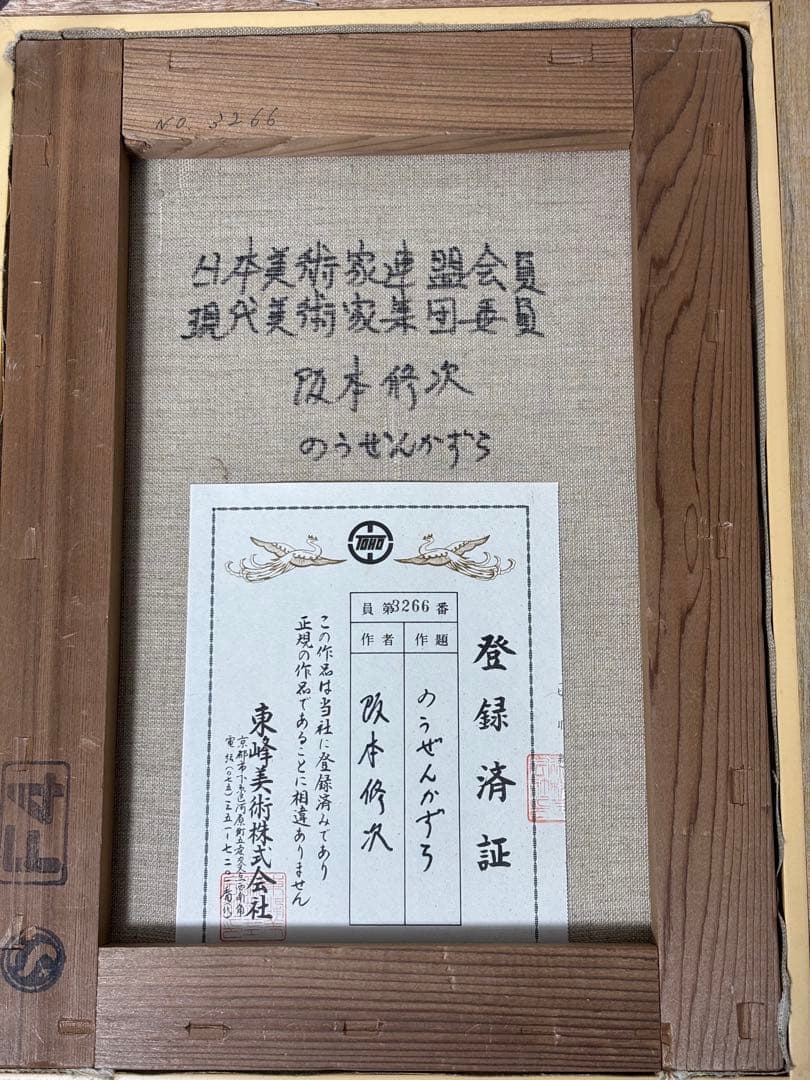 NO. 3266
日本美術家連盟会員
現代美術家集団委員
阪本修次
のうぜんかずら
TOHO
登録済証
員第3266番
作題
作者
のうぜんかずら
阪本修次
この作品は当社に登録済みであり
正規の作品であることに相違ありません
東峰美術株式会社
京都市下京区河原町五条交差西南角
電話(〇七五)三五一-七二〇一番(代)
F4
S